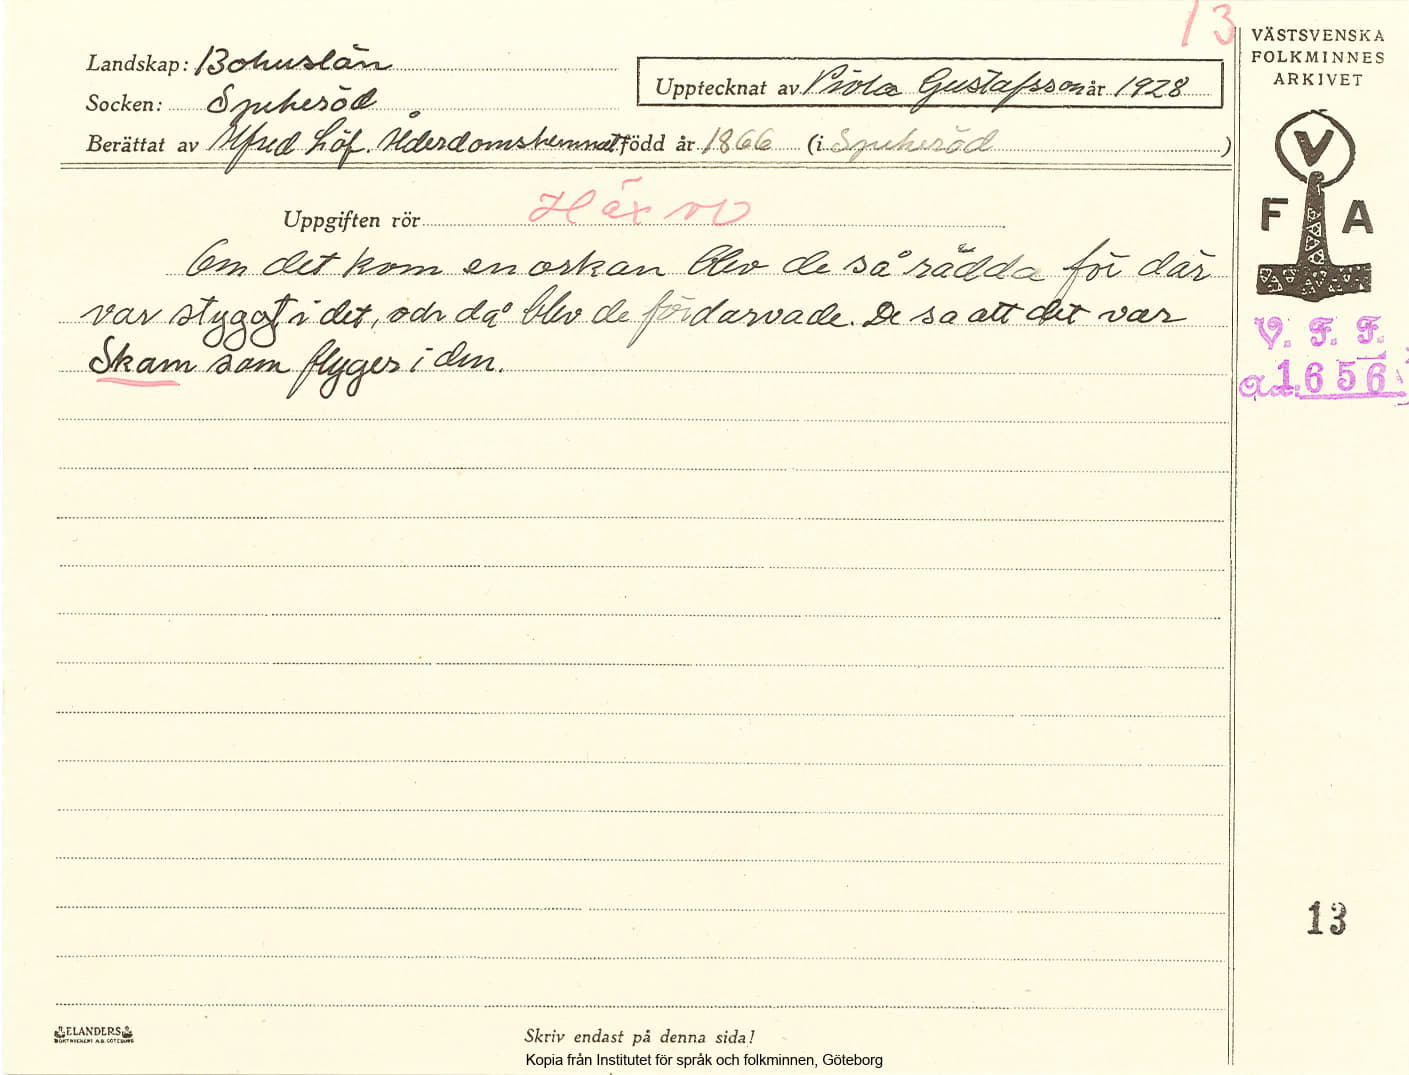 13
VÄSTSVENSKA
FOLKMINNES
ARKIVET
Landskap: Bohuslän
Upptecknat av Viola Gustafsson år 1928
Socken: Spekeröd
Berättat av Alfred Löf. Ålderdomshemmet född år 1866 (i Spekeröd)
V
F A
Uppgiften rör Häxor
Om det kom en orkan blev de så rädda för där
var styggt i det, och då blev de fördärvade. De sa att det var
Skam som flyger i den.
V. F. F.
1656
13
ELANDERS
BOKTRYCKERI A.B. GÖTEBORG
Skriv endast på denna sida!
Kopia från Institutet för språk och folkminnen, Göteborg